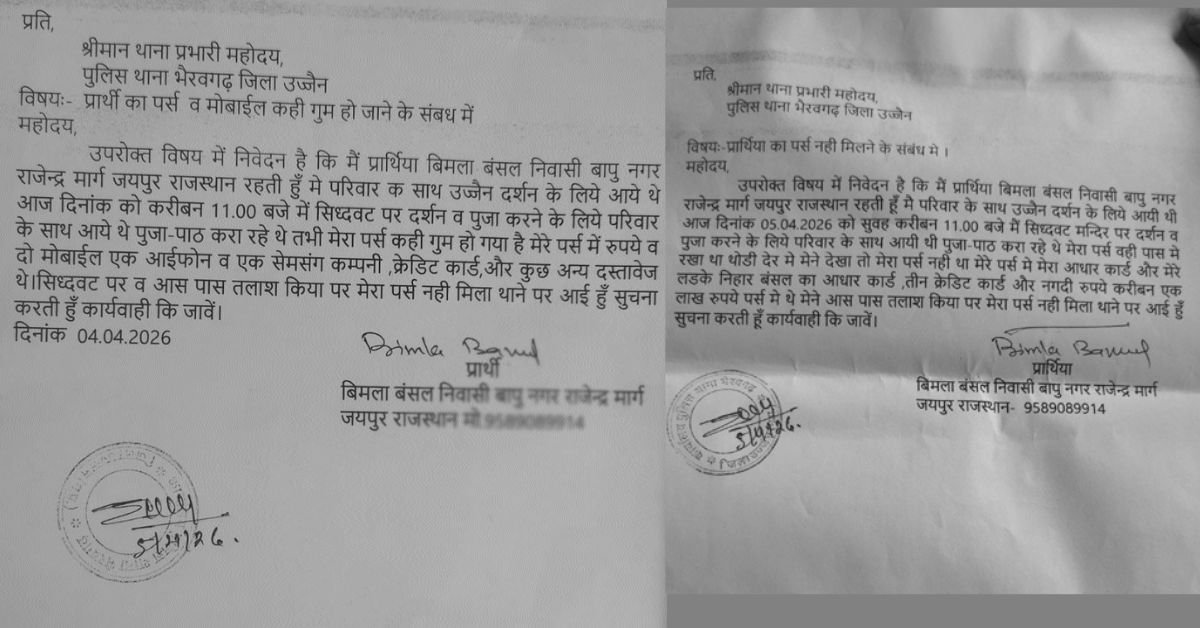 प्रति,
श्रीमान थाना प्रभारी महोदय,
पुलिस थाना भैरवगढ़ जिला उज्जैन
विषयः- प्रार्थी का पर्स व मोबाईल कही गुम हो जाने के संबध में
महोदय,
उपरोक्त विषय में निवेदन है कि मैं प्रार्थिया बिमला बंसल निवासी बापु नगर
राजेन्द्र मार्ग जयपुर राजस्थान रहती हुँ मे परिवार क साथ उज्जैन दर्शन के लिये आये थे
आज दिनांक को करीबन 11.00 बजे में सिध्दवट पर दर्शन व पुजा करने के लिये परिवार
के साथ आये थे पुजा-पाठ करा रहे थे तभी मेरा पर्स कही गुम हो गया है मेरे पर्स में रुपये व
दो मोबाईल एक आईफोन व एक सेमसंग कम्पनी ,क्रेडिट कार्ड,और कुछ अन्य दस्तावेज
थे।सिध्दवट पर व आस पास तलाश किया पर मेरा पर्स नही मिला थाने पर आई हुँ सुचना
करती हुँ कार्यवाही कि जावें।
दिनांक 04.04.2026
Bimla Bansal
प्रार्थी
बिमला बंसल निवासी बापु नगर राजेन्द्र मार्ग
जयपुर राजस्थान मो 9589089914
5/4/26.
प्रति,
श्रीमान थाना प्रभारी महोदय,
पुलिस थाना भैरवगढ़ जिला उज्जैन
विषयः-प्रार्थिया का पर्स नही मिलने के संबंध मे ।
महोदय,
उपरोक्त विषय में निवेदन है कि मैं प्रार्थिया बिमला बंसल निवासी बापु नगर
राजेन्द्र मार्ग जयपुर राजस्थान रहती हूँ मै परिवार के साथ उज्जैन दर्शन के लिये आयी थी
आज दिनांक 05.04.2026 को सुवह करीबन 11.00 बजे मैं सिध्दवट मन्दिर पर दर्शन व
पुजा करने के लिये परिवार के साथ आयी थी पुजा-पाठ करा रहे थे मेरा पर्स वही पास मे
रखा था थोडी देर मे मेने देखा तो मेरा पर्स नही था मेरे पर्स मे मेरा आधार कार्ड और मेरे
लडके निहार बंसल का आधार कार्ड ,तीन क्रेडिट कार्ड और नगदी रुपये करीबन एक
लाख रुपये पर्स मे थे मेने आस पास तलाश किया पर मेरा पर्स नही मिला थाने पर आई हुँ
सुचना करती हूँ कार्यवाही कि जावें।
Bimla Bansal
प्रार्थिया
बिमला बंसल निवासी बापु नगर राजेन्द्र मार्ग
जयपुर राजस्थान- 9589089914
5/4/26.